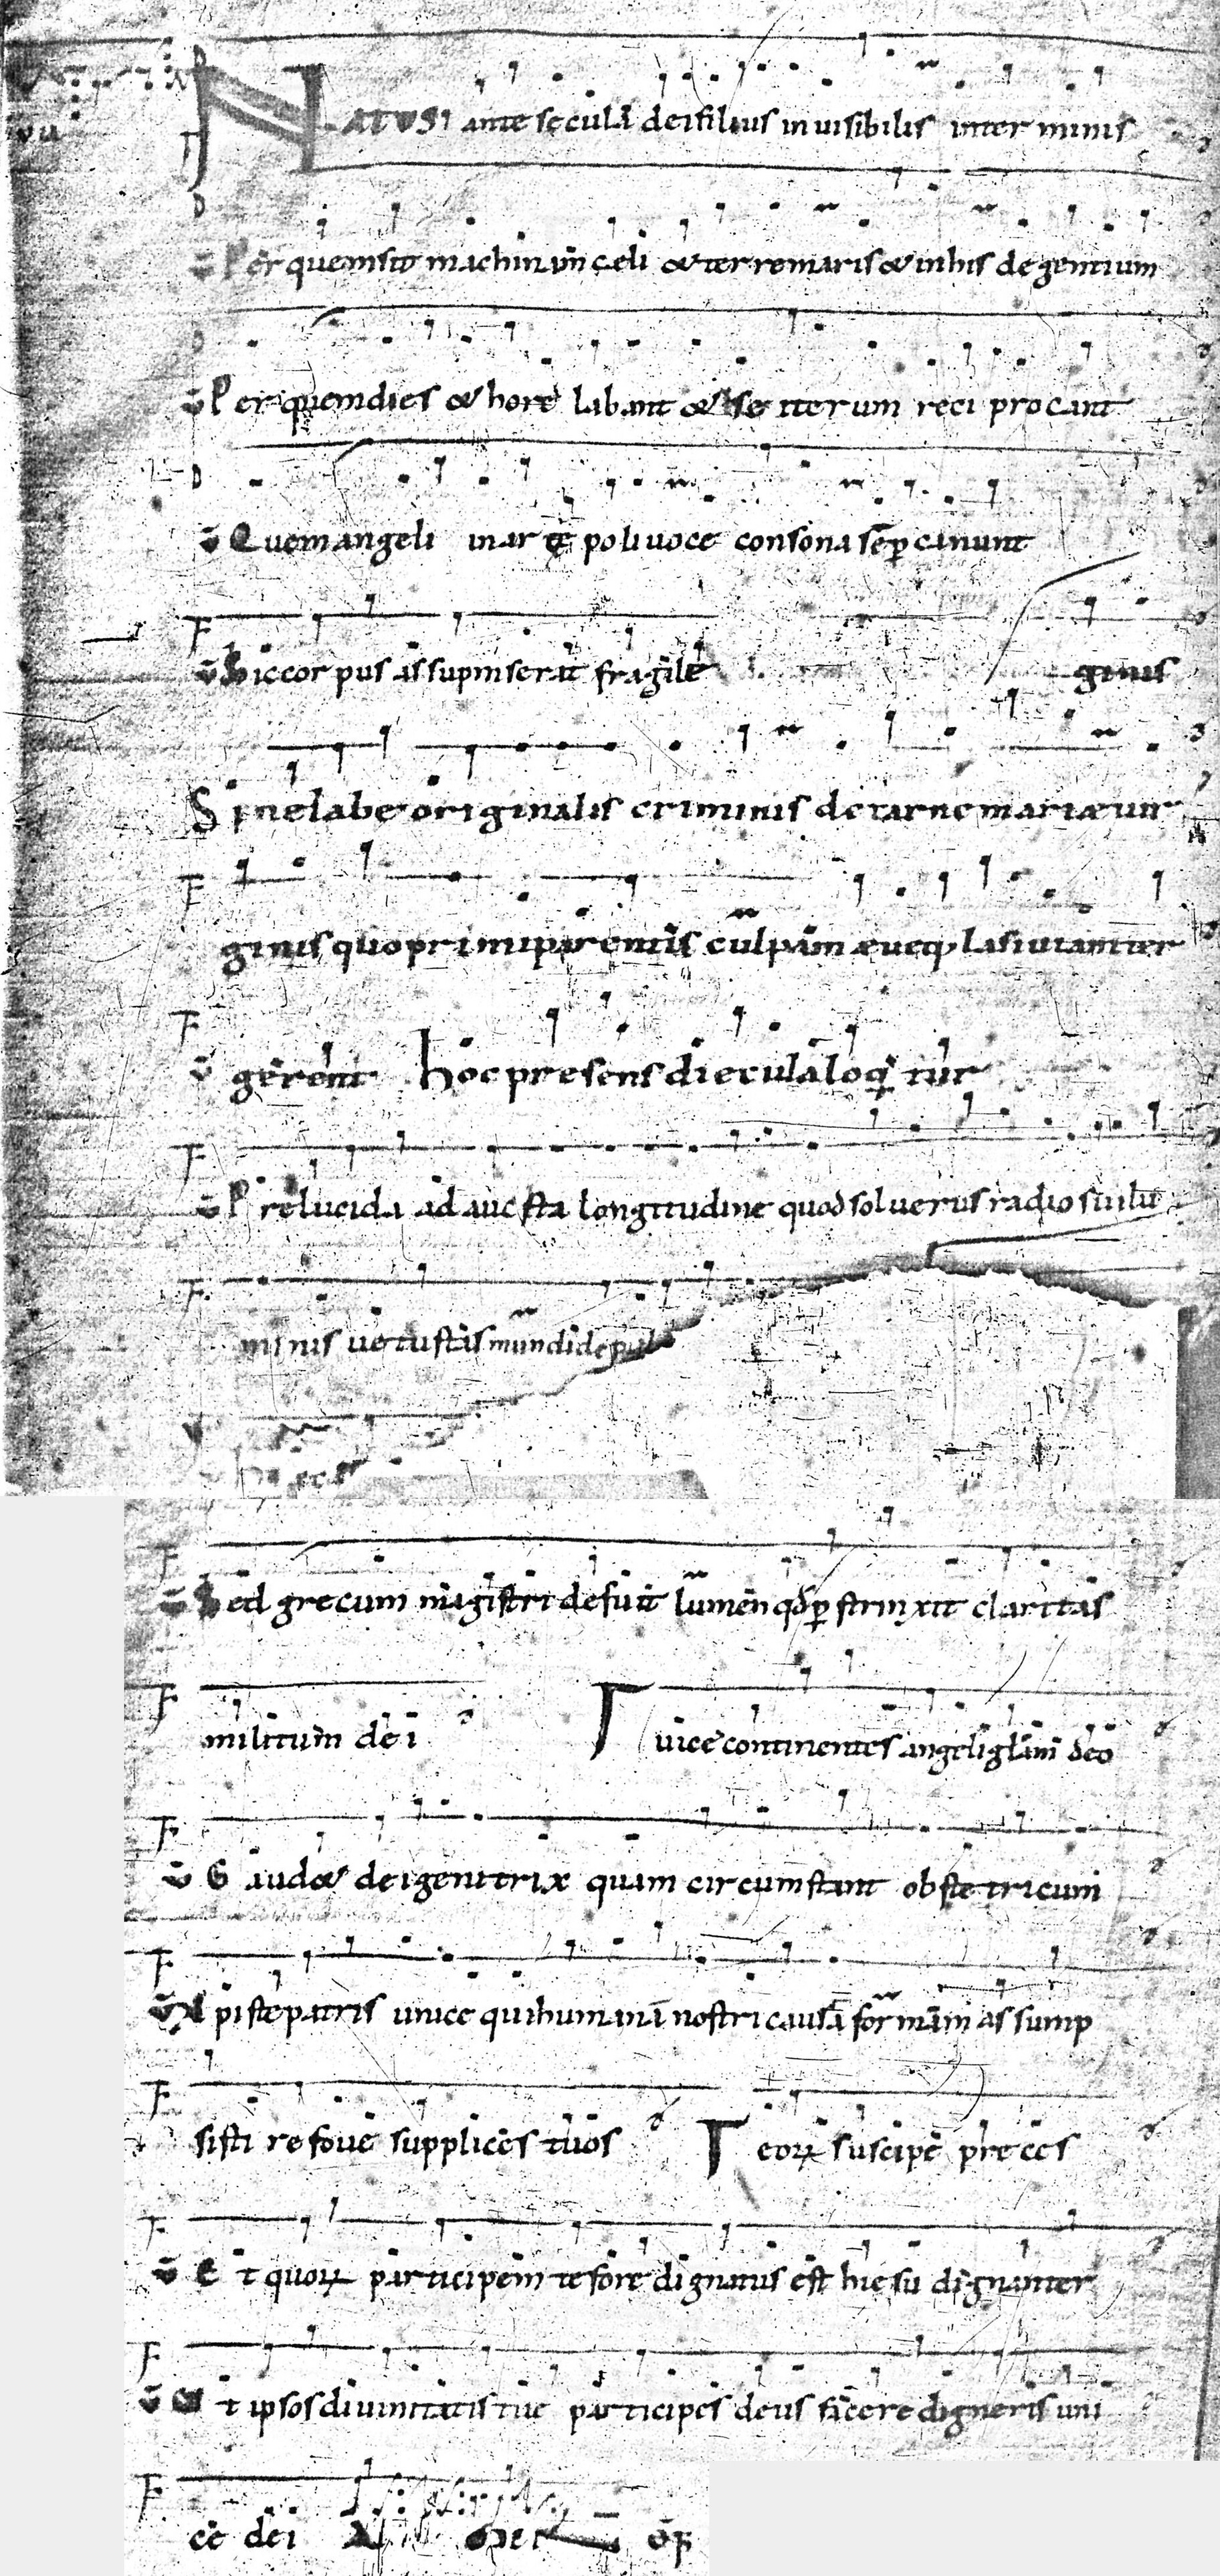 NATUS ante secula dei filius inuisibilis inter minis
Per quem sit machina celi & terre maris & in his degentium
Per quem dies & hore labant & se iterum reciprocant
Quem angeli in arce poli uoce consona sēp canunt
Hic corpus assumpserat fragile
ginis
Sine labe originalis criminis de carne mariæ uir
ginis quo primi parentis culpam æueq; lasciuiam ter
gerent Hoc presens diecula loqitur
Prelucida adaucta longitudine quod sol uerus radio sui lu
minis uetustas mundi depul
Sed grecum magistri defuit lumen qđ p strinxit claritas
militum dei
uice continentes angeli glām deo
Gaude dei genitrix quam circumstant obstetricum
Xpiste patris unice qui humanā nostri causā formam assump
sisti refoue supplices tuos Teorꝝ suscipe preces
Et quorꝝ participem te fore dignatus est hiesu dignanter
Ut ipsos diuinitatis tue participes deus facere digneris uni
ce dei